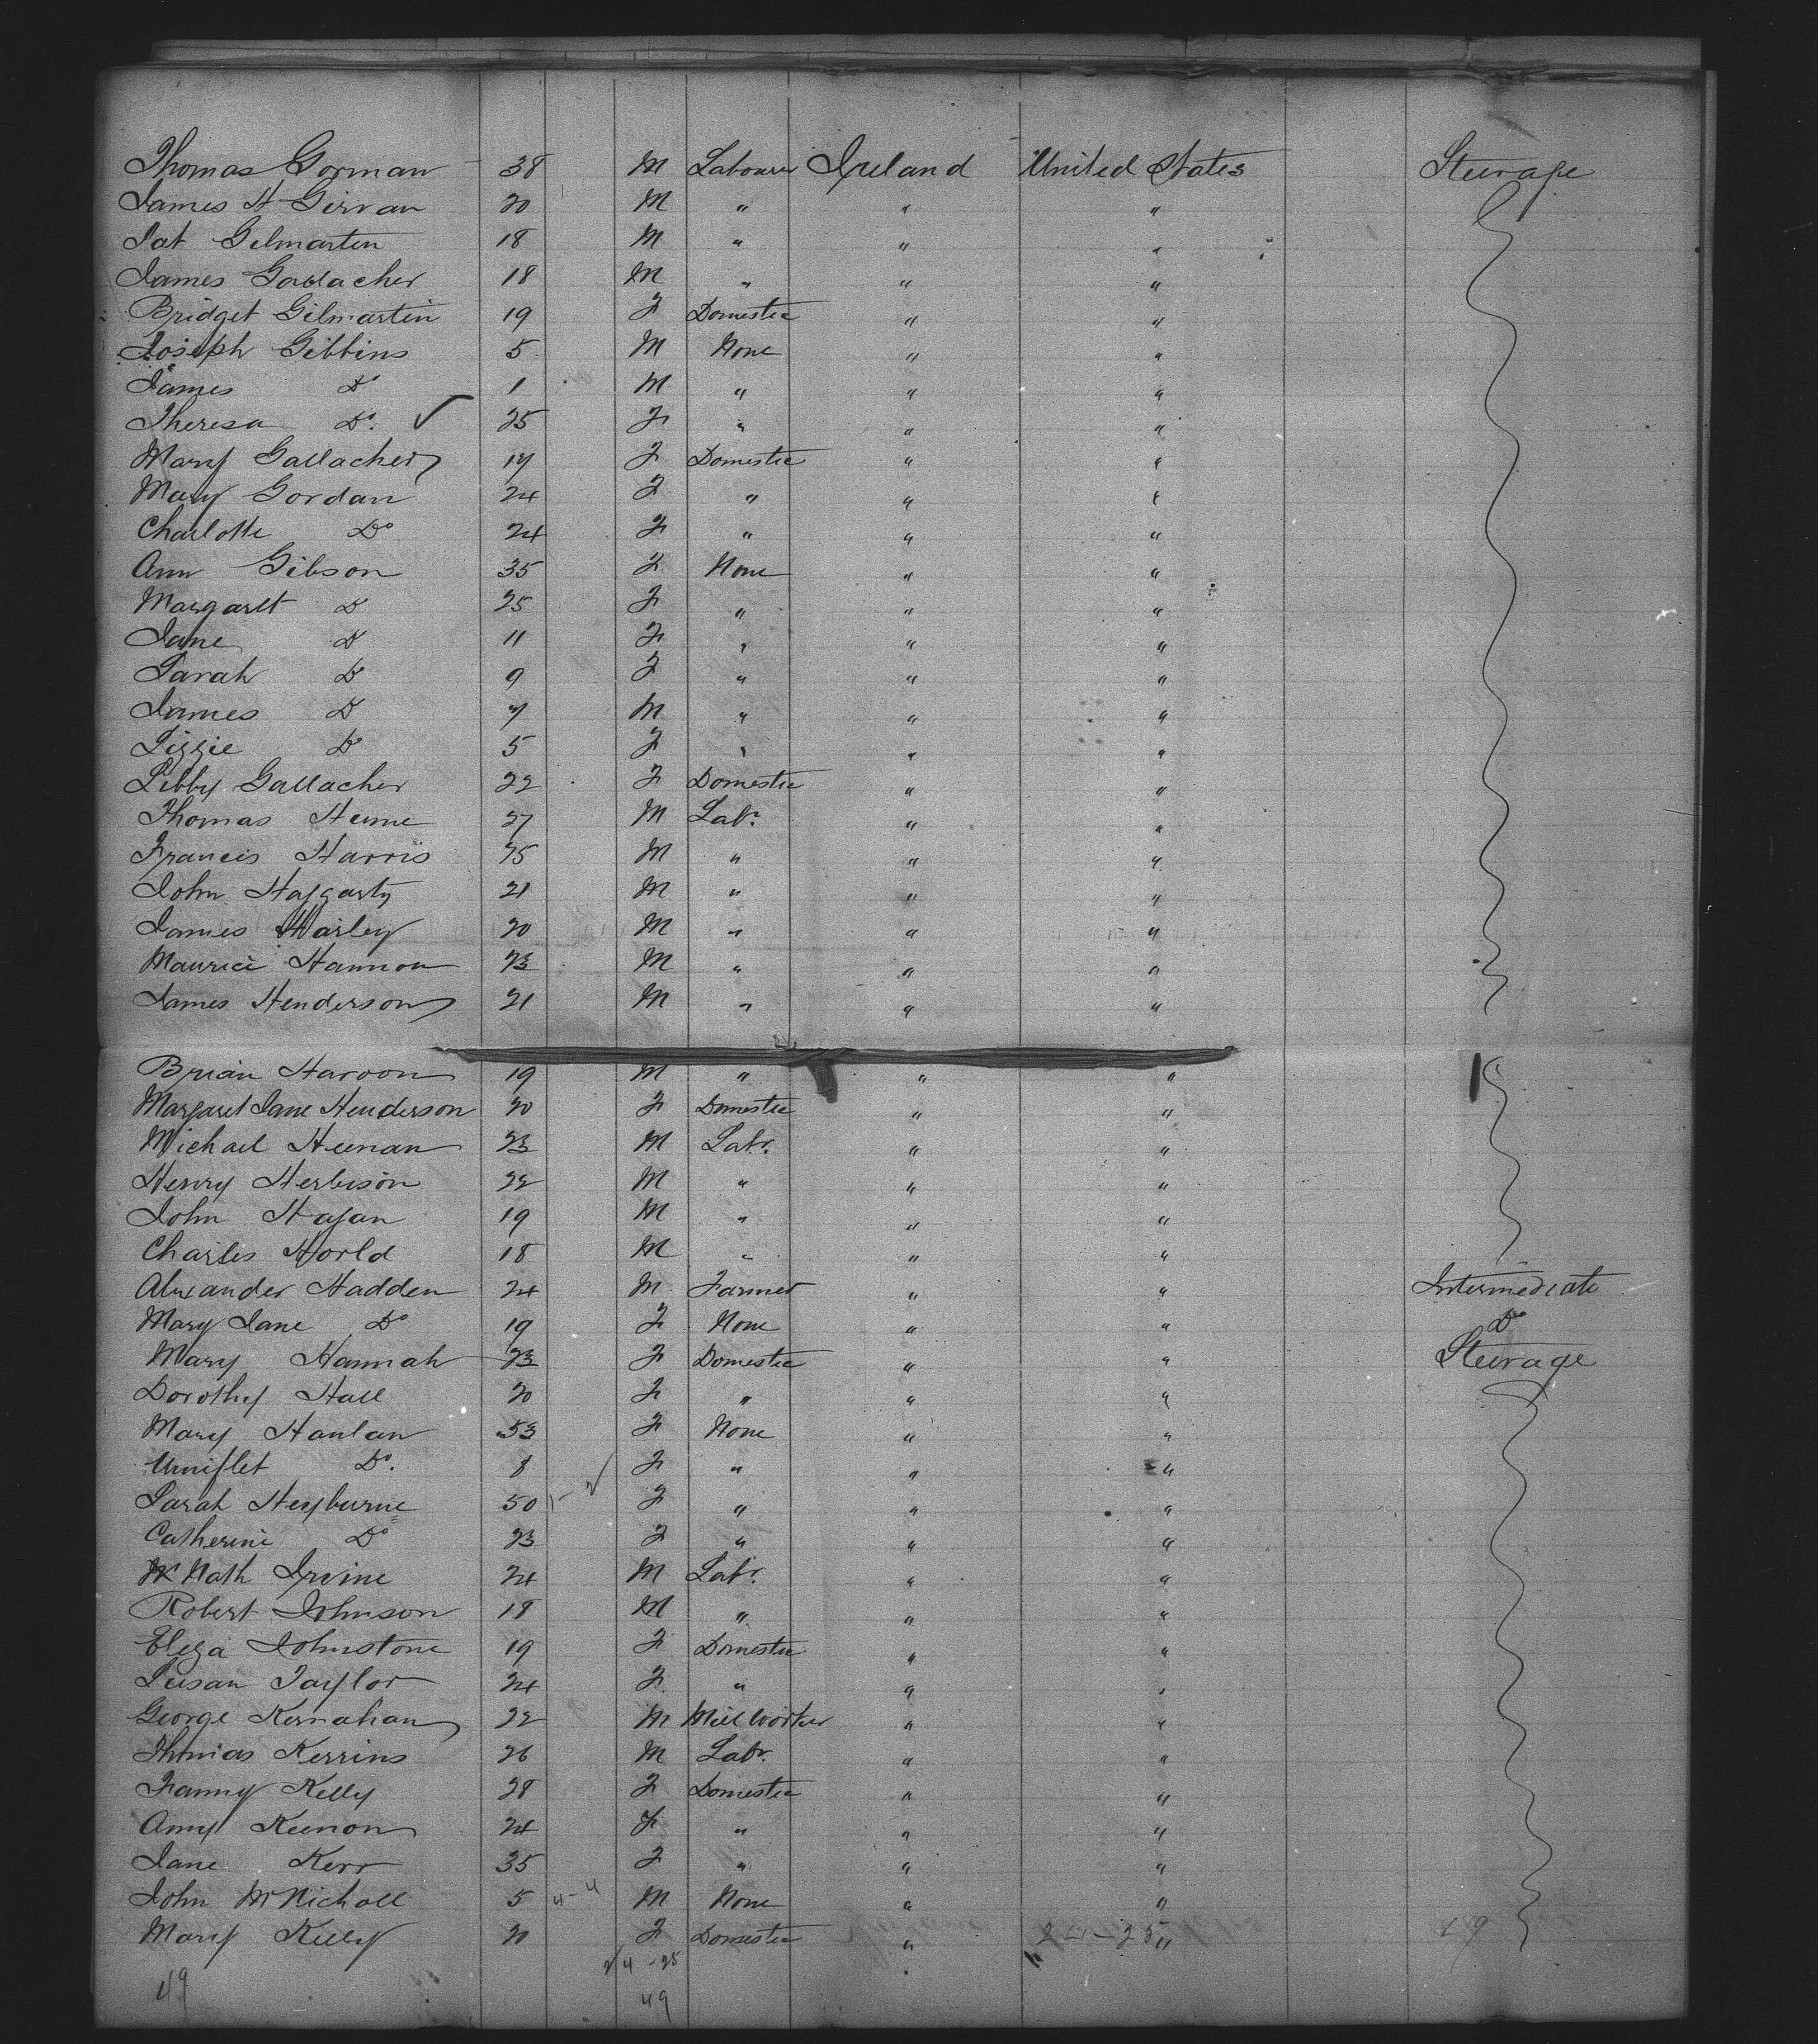 Thomas Gorman 38 M Labourer Ireland United States Steerage
James H Girvan 20 M " " "
Pat Gilmartin 18 M " " "
James Gallacher 18 M " " "
Bridget Gilmartin 19 F Domestic " "
Joseph Gibbins 5 M None " "
James Do 1 M " " "
Theresa Do. ✓ 25 F " " "
Mary Gallacher 17 F Domestic " "
Mary Gordan 24 F " " "
Charlotte Do 24 F " " "
Ann Gibson 35 F None " "
Margaret D 25 F " " "
Jane D 11 F " " "
Sarah D 9 F " " "
James D 7 M " " "
Lizzie D 5 F " " "
Libby Gallacher 22 F Domestic " "
Thomas Hume 27 M Labr. " "
Francis Harris 25 M " " "
John Haggarty 21 M " " "
James Harley 20 M " " "
Maurice Hannon 23 M " " "
James Henderson 21 M " " "
Brian Haroon 19 M " " "
Margaret Jane Henderson 20 F Domestic " "
Michael Heenan 23 M Labr. " "
Henry Herbison 22 M " " "
John Hagan 19 M " " "
Charles Horld 18 M " " "
Alexander Hadden 24 M Farmer " " Intermediate
Mary Jane Do 19 F None " " Do
Mary Hannah 23 F Domestic " " Steerage
Dorothy Hall 20 F " " "
Mary Hanlan 53 F None " "
Do. 8 F " " "
Sarah Heyburne 50 F " " "
Catherine Do 23 F " " "
Nath Irvine 24 M Labr. " "
Robert Johnson 18 M " " "
Eliza Johnstone 19 F Domestic " "
Susan Taylor 24 F " " "
George Kernahan 22 M Mill Worker " "
Thomas Kerrins 26 M Labr. " "
Fanny Kelly 28 F Domestic " "
Amy Keenon 24 F " " "
Jane Kerr 35 F " " "
John McNicholl 5 4-4 M None " "
Mary Kelly 20 F Domestic " 24-25 " 49
24-25
49 49